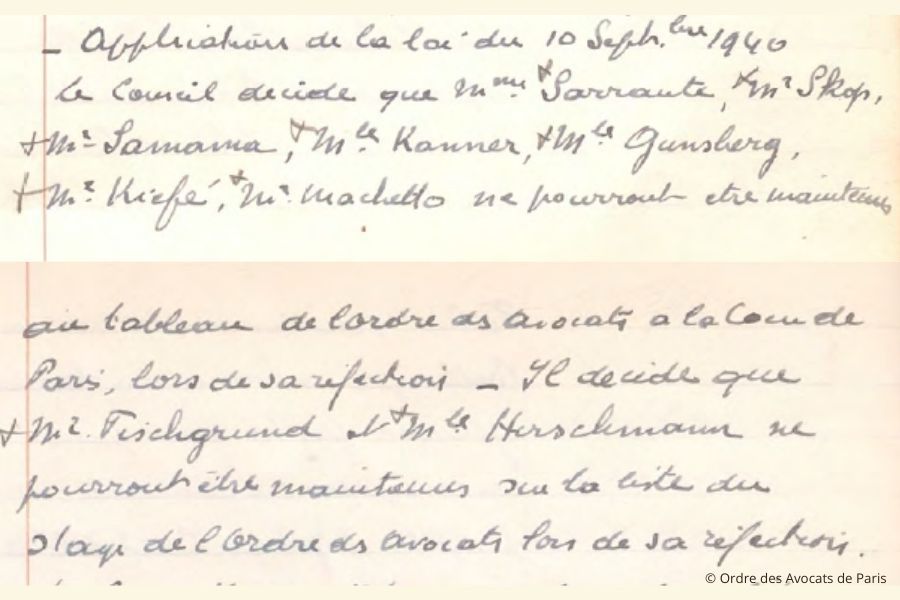 - Application de la loi du 10 Septbre 1940
Le Conseil decide que Mme + Sarraute, + Mr Skop,
+ Mr Samama, + Mlle Kanner, + Mlle Gunsberg,
+ Mr Kiefé, + Mr Machetto ne pourront etre maintenus
au tableau de l'ordre ds avocats a la Cour de
Paris, lors de sa réfection - Il decide que
+ Mr Fischgrund et + Mlle Herschmann ne
pourront être maintenus sur la liste du
stage de l'Ordre ds avocats lors de sa réfection.
© Ordre des Avocats de Paris